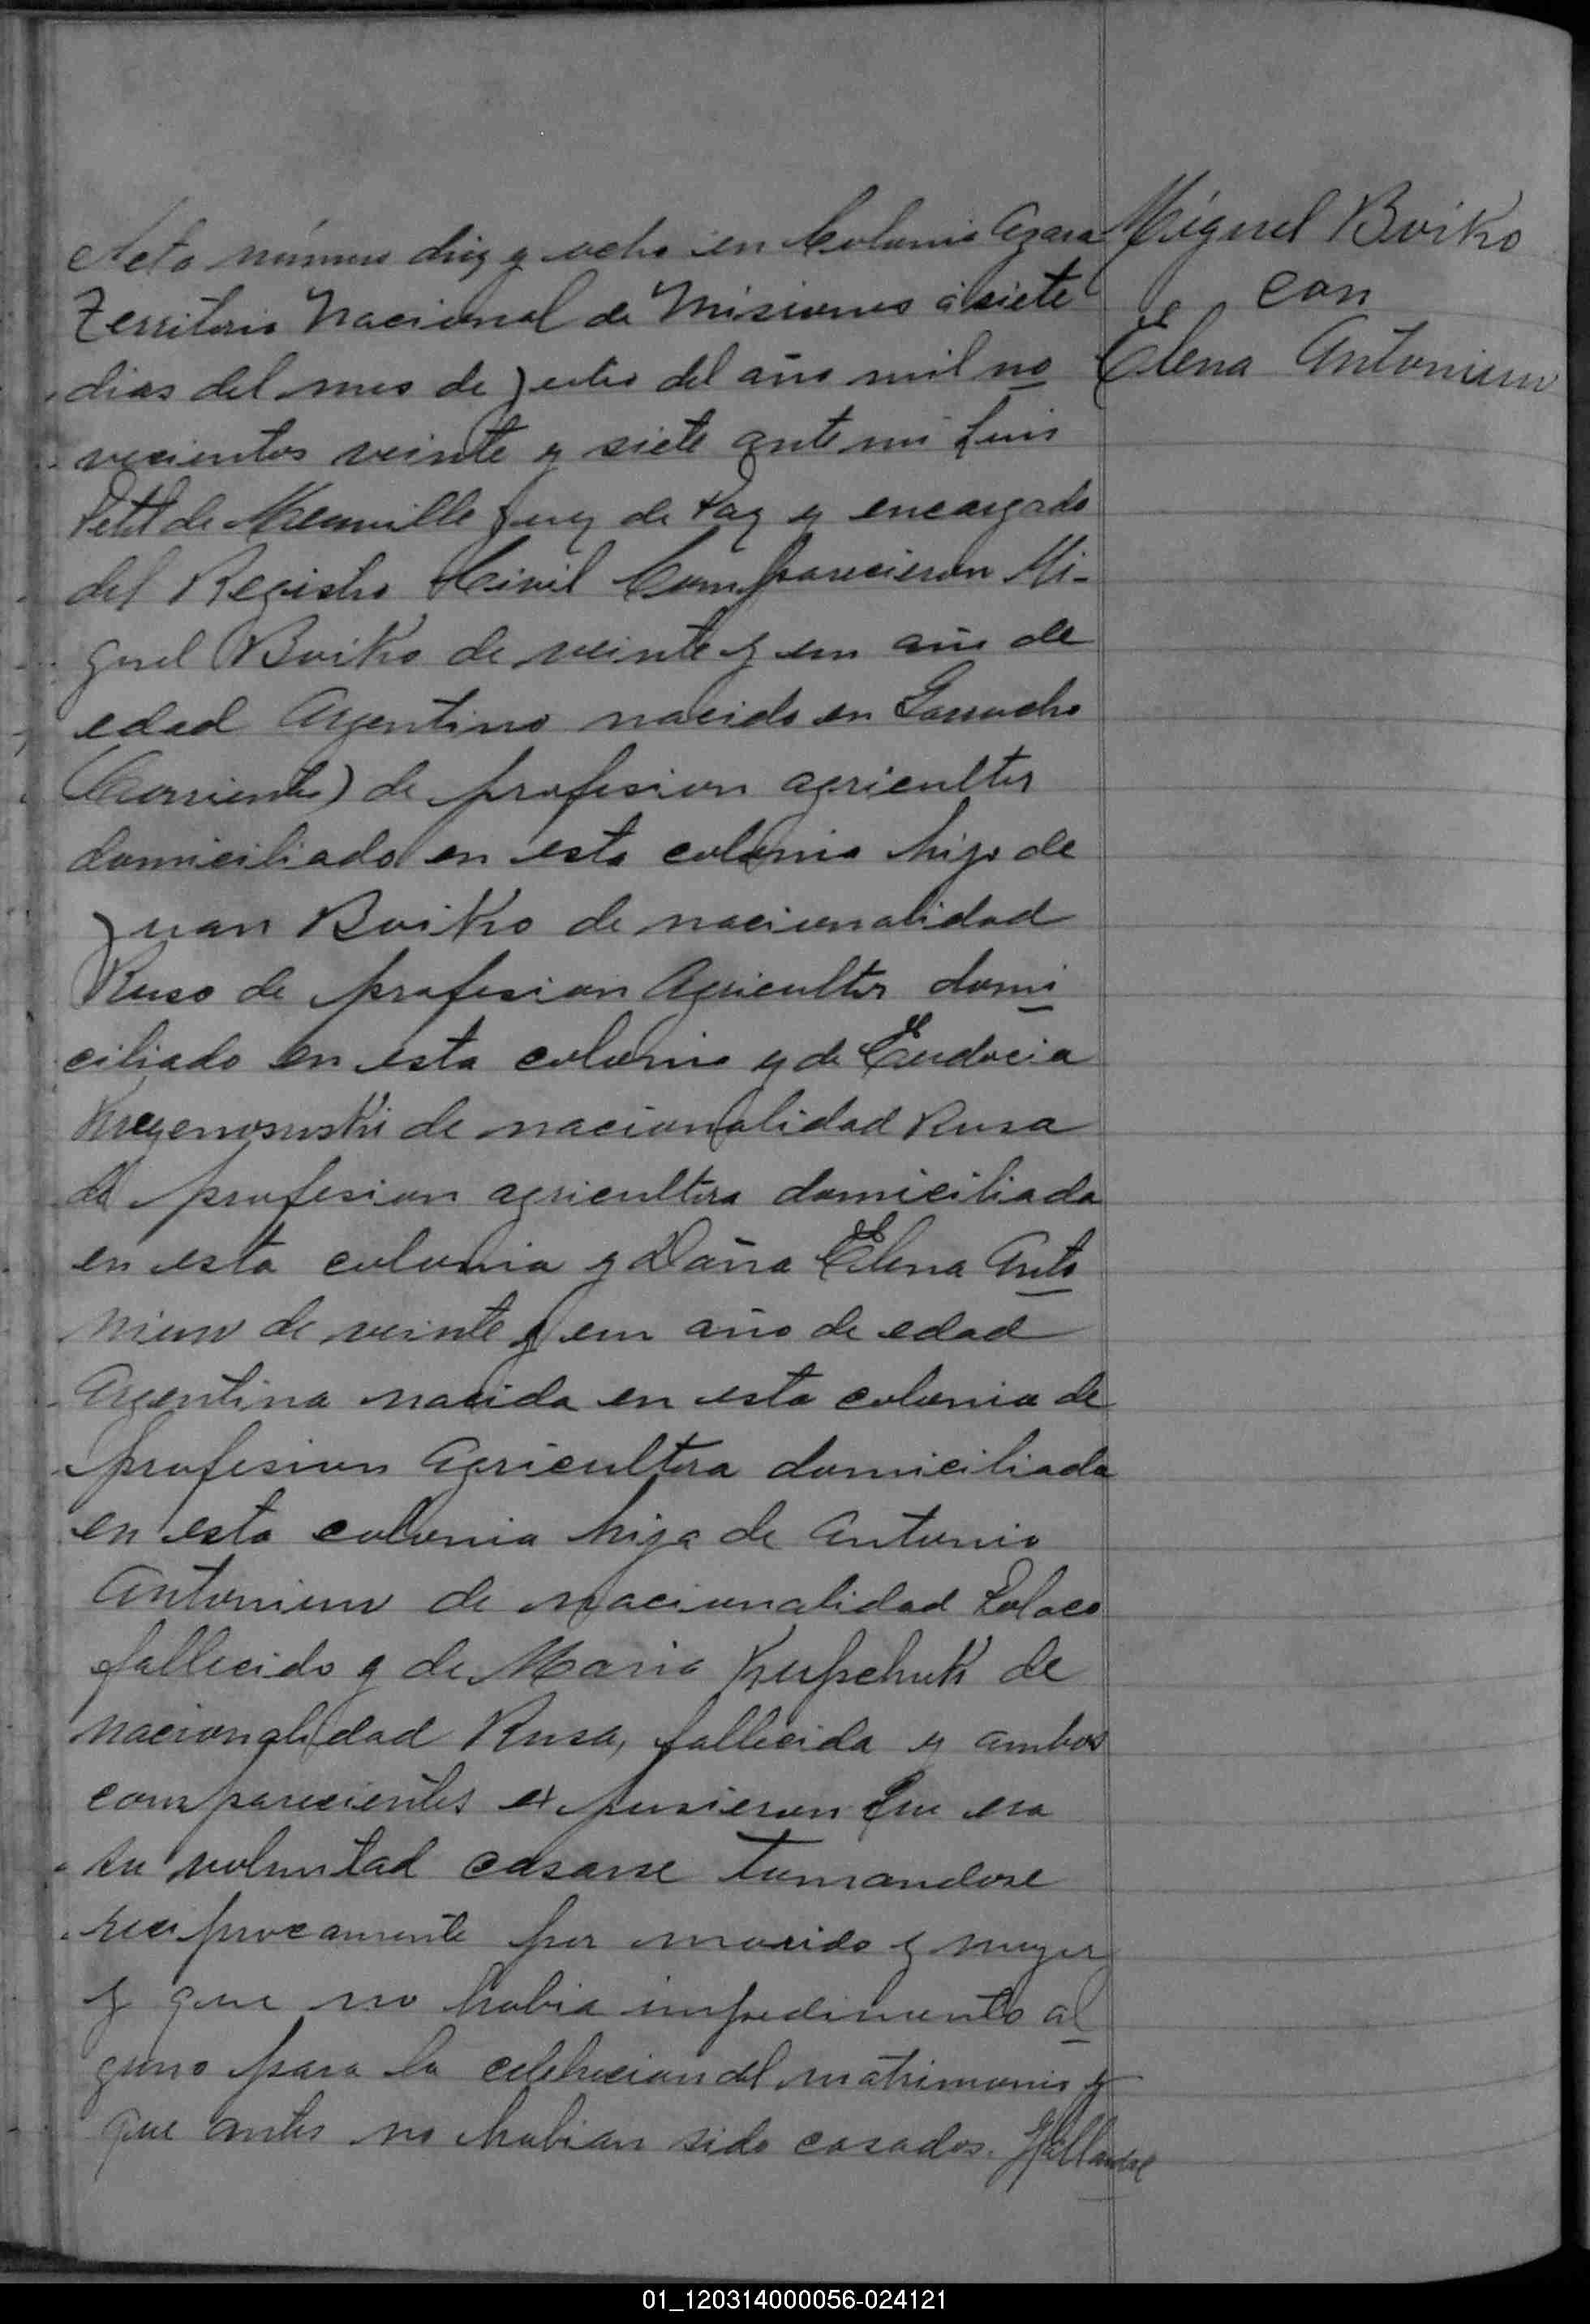 Acta número diez y ocho en Colonia Azara
Territorio Nacional de Misiones á siete
dias del mes de Julio del año mil no
vecientos veinte y siete ante mi Luis
Petit de Meurville Juez de Paz y encargado
del Registro Civil Comparecieron Mi-
guel Boiko de veinte y un año de
edad Argentino nacido en Garruchos
(Corrientes) de profesion agricultor
domiciliado en esta colonia hijo de
Juan Boiko de nacionalidad
Ruso de profesion Agricultor domi
ciliado en esta colonia y de Eudocia
de nacionalidad Rusa
de profesion agricultora domiciliada
en esta colonia y Doña Elena Anto
niuw de veinte y un año de edad
Argentina nacida en esta colonia de
profesion Agricultora domiciliada
en esta colonia hija de Antonio
Antoniuw de nacionalidad Polaco
fallecido y de Maria Kupchuk de
nacionalidad Rusa, fallecida y ambos
comparecientes expusieron que era
su voluntad casarse tomandose
reciprocamente por marido y muger
y que no habia impedimento al
guno para la celebracion del matrimonio y
que antes no habian sido casados. Hallandose
Miguel Boiko
con
Elena Antoniuw
01_120314000056-024121